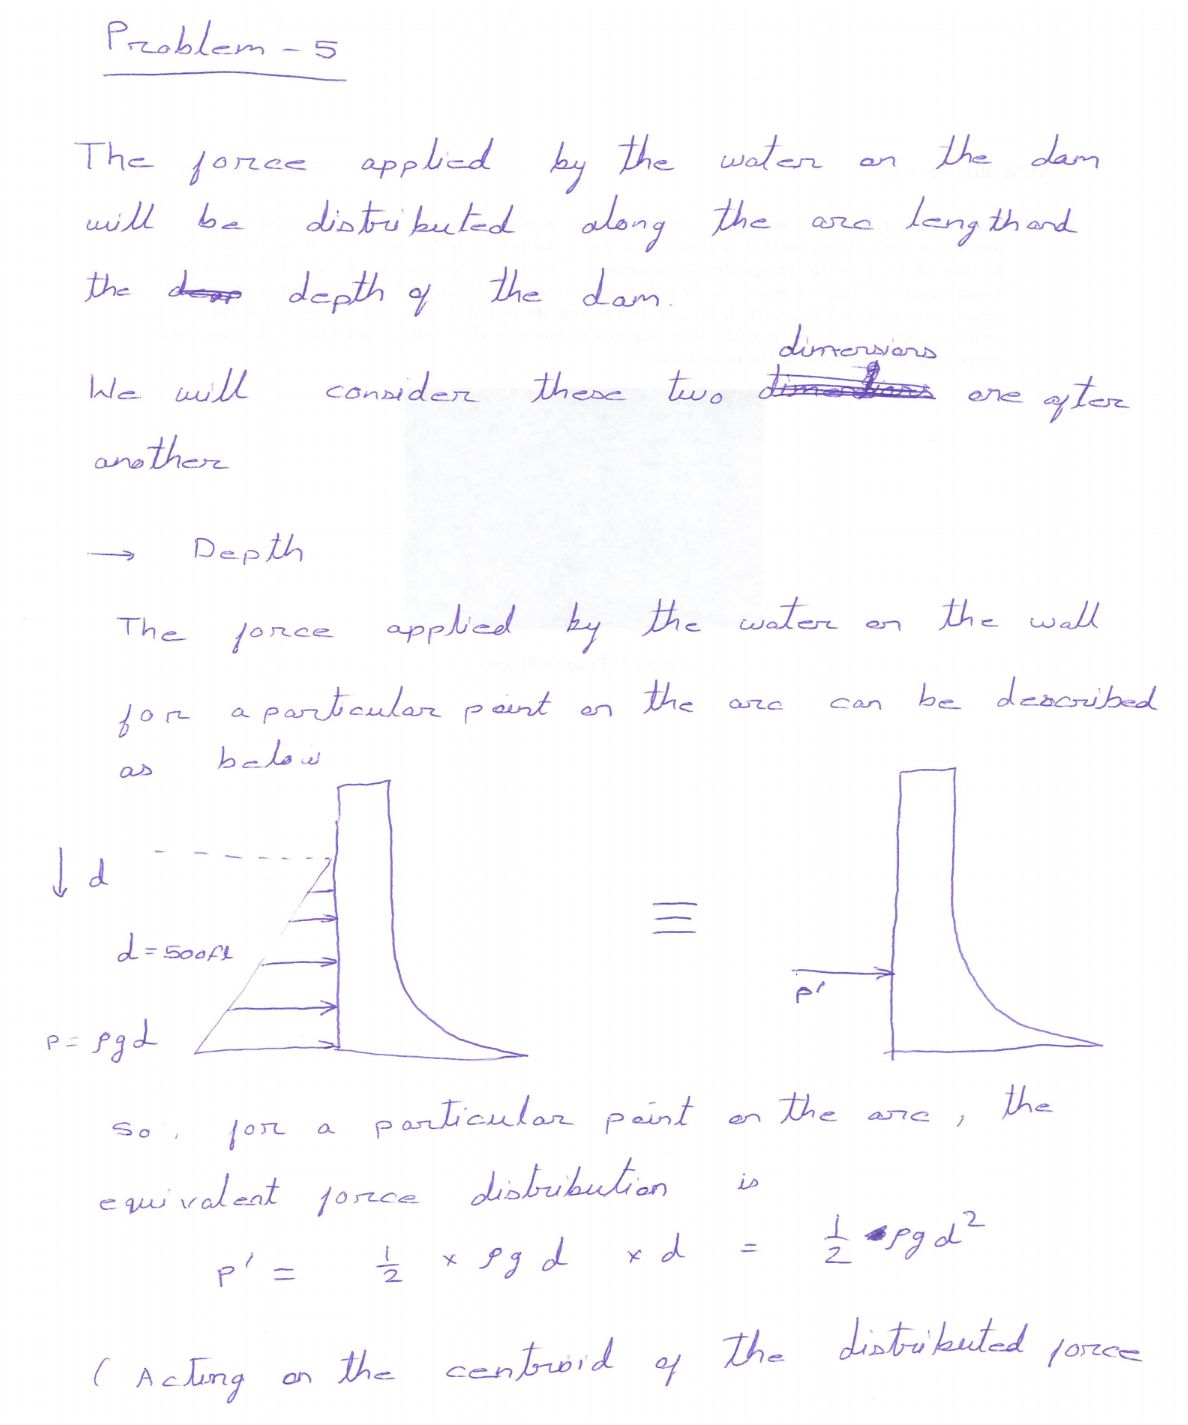 Problem - 5
The force applied by the water on the dam
will be distributed along the arc length and
the depth of the dam.
dimensions
We will consider these two one after
another
→ Depth
The force applied by the water on the wall
for a particular point on the arc can be described
as below
↓ d
d = 500ft
P = ρgd
≡
P'
So, for a particular point on the arc, the
equivalent force distribution is
P' = 1/2 × ρgd × d = 1/2 ρgd²
(Acting on the centroid of the distributed force